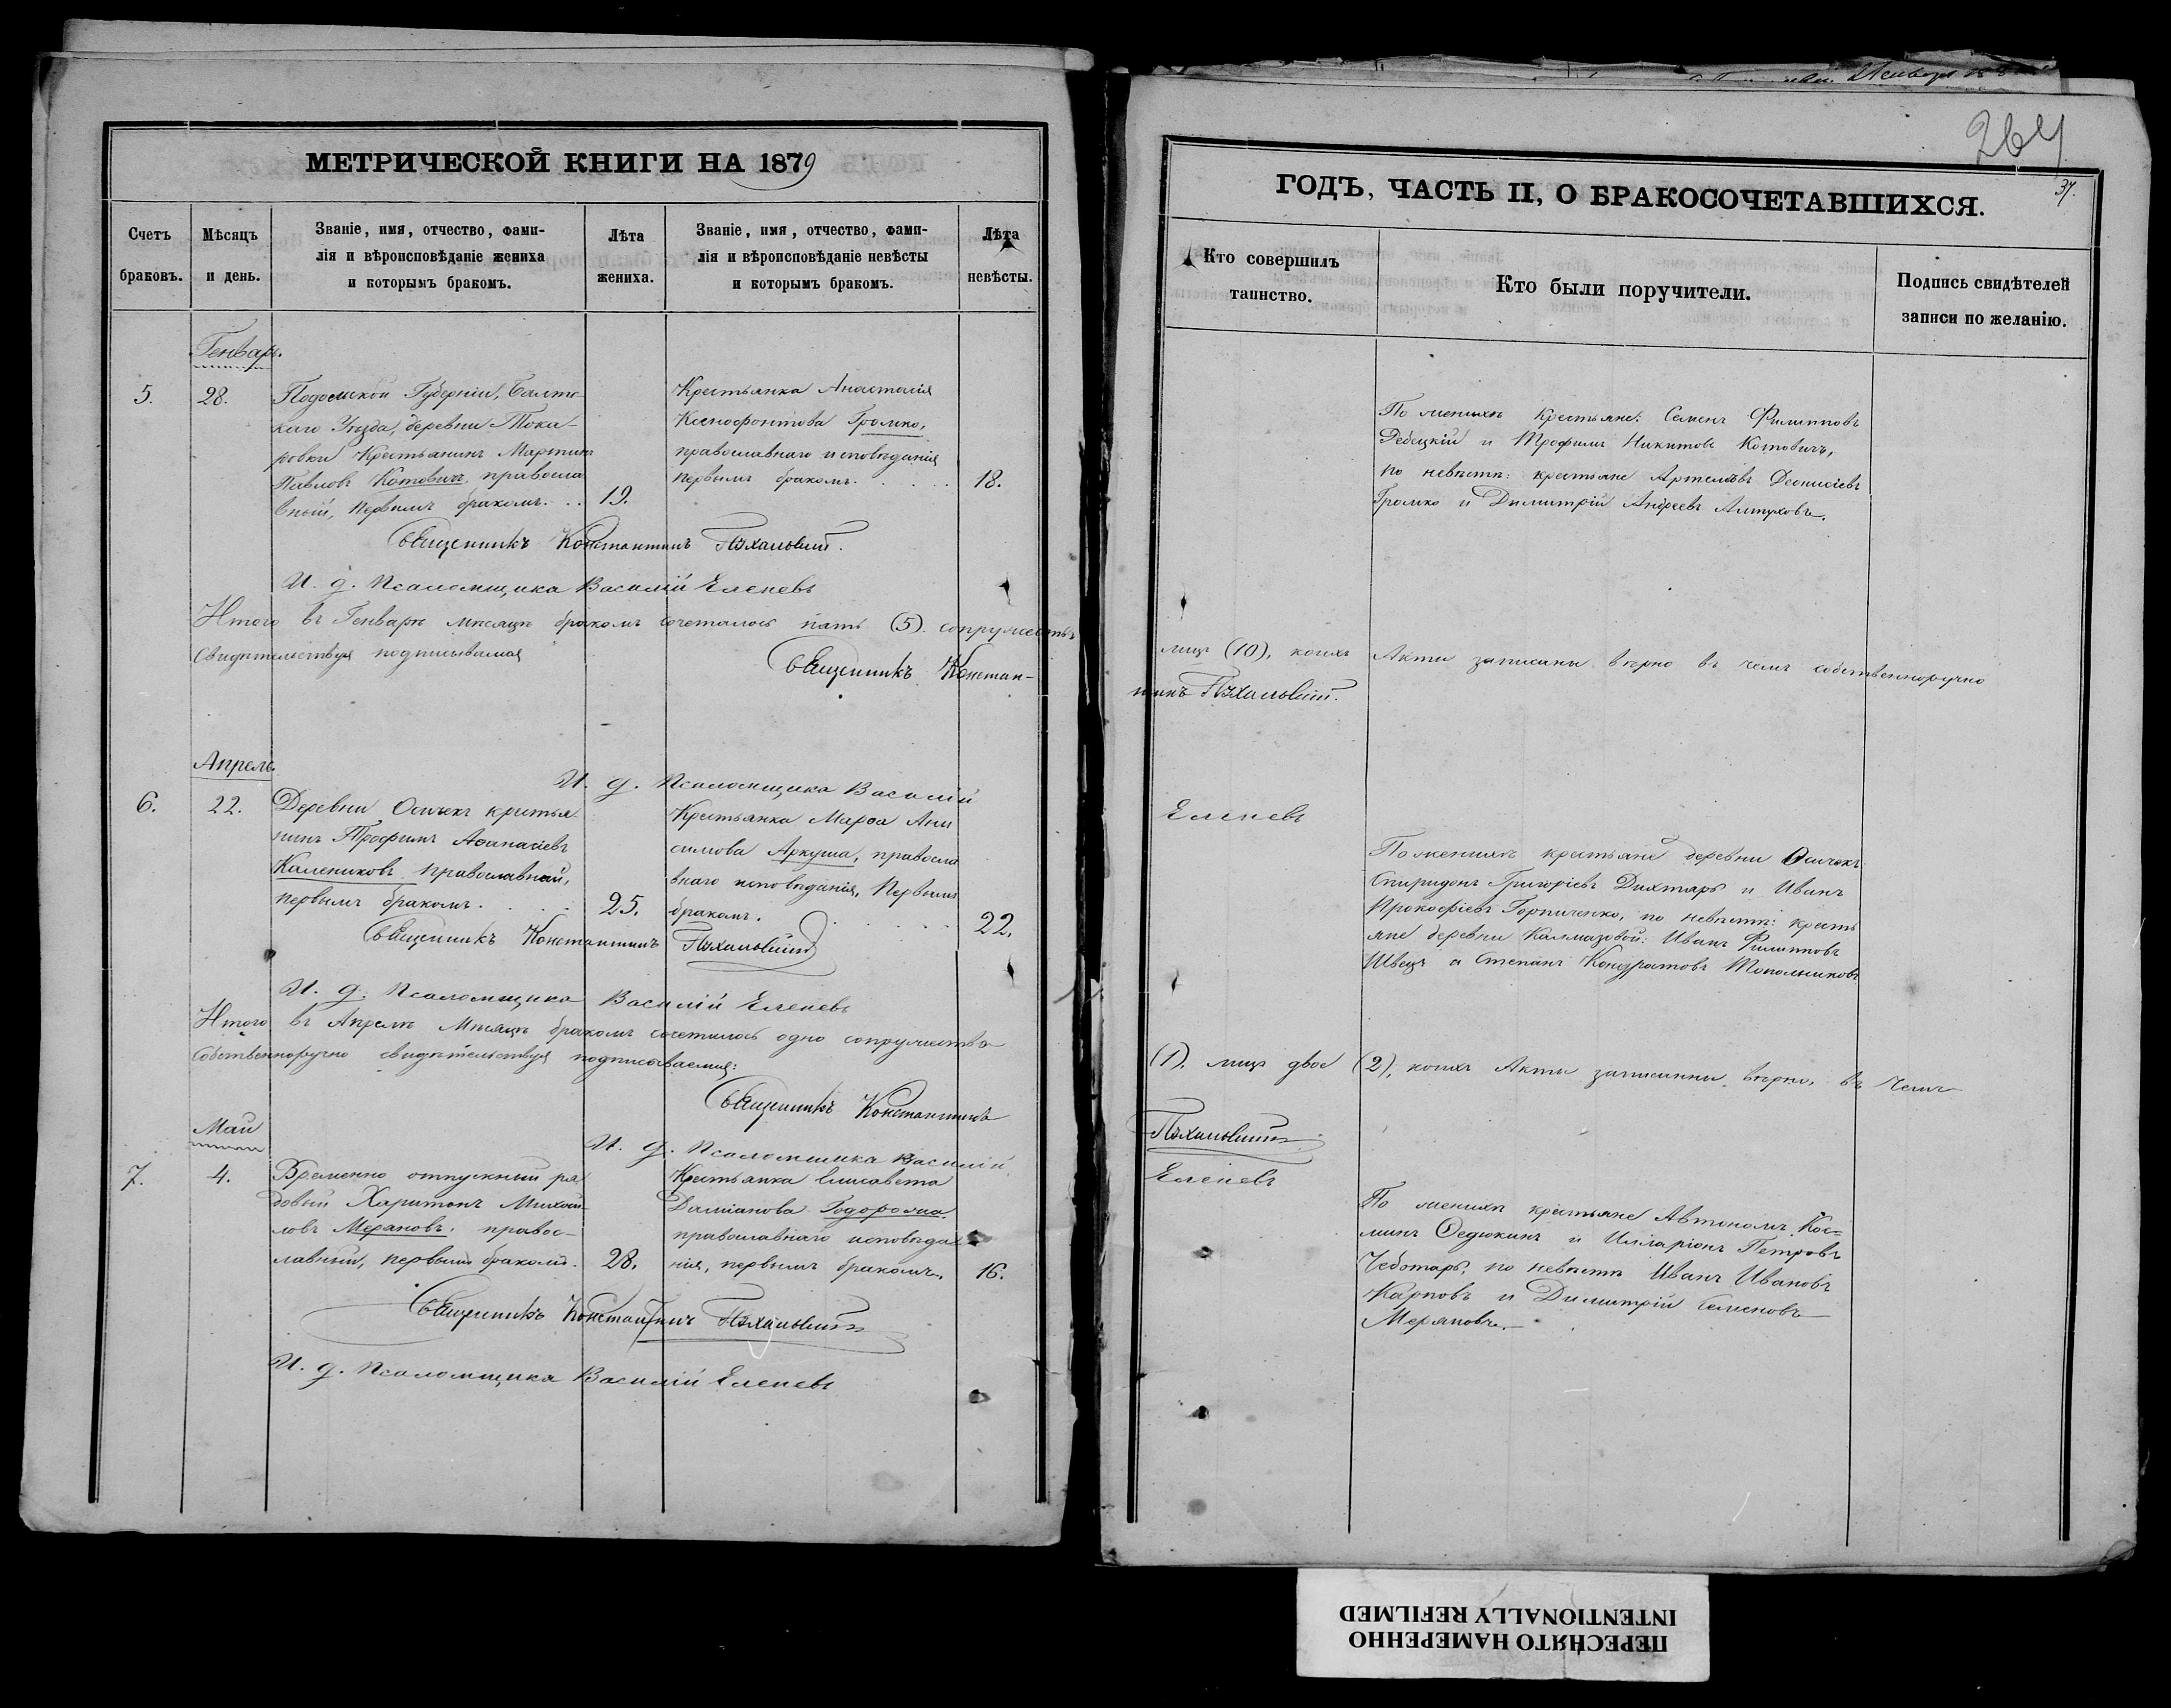 МЕТРИЧЕСКОЙ КНИГИ НА 1879
Счетъ браковъ.
Мѣсяцъ и день.
Званіе, имя, отчество, фами-
лія и вѣроисповѣданіе жениха
и которымъ бракомъ.
Лѣта жениха.
Званіе, имя, отчество, фами-
лія и вѣроисповѣданіе невѣсты
и которымъ бракомъ.
Лѣта невѣсты.
Генварь.
5.
28.
Подольской Губерніи, Балтс
каго Уѣзда, деревни Тока-
ровки Крестьянинъ Мартинъ
Павловъ Котовичъ, правосла
вный, первымъ бракомъ. . .
19.
Крестьянка Анастасія
Ксенофонтова Громко,
православнаго исповѣданія
первымъ бракомъ. . . . .
18.
Священникъ Константинъ
И. д. Псаломщика Василій Еленевъ
Итого въ Генварѣ мѣсяцѣ бракомъ сочеталось пять (5) супружествъ
свидѣтельствуя подписываемся
Священникъ Констан-
И. д. Псаломщика Василій
Апрель.
6.
22.
Деревни Осичекъ крестья
нинъ Трофимъ Аѳанасіевъ
Калениковъ православный,
первымъ бракомъ. . . . .
25.
Крестьянка Марѳа Ани
симова Аркуша, правосла
внаго исповѣданія, Первымъ
бракомъ. . . . . .
22.
Священникъ Константинъ
И. д. Псаломщика Василій Еленевъ
Итого въ Апрелѣ Мѣсяцѣ бракомъ сочеталось одно супружество
собственноручно свидѣтельствуя подписываемся:
Священникъ Константинъ
И. д. Псаломщика Василій
Май
7.
4.
Временно отпускный ря
довый Харитонъ Михай-
ловъ Мерановъ. правос-
лавный, первымъ бракомъ.
28.
Крестьянка Елисавета
Даміанова
православнаго исповѣда
нія, первымъ бракомъ.
16.
Священникъ Константинъ
И. д. Псаломщика Василій Еленевъ
264
37.
ГОДЪ, ЧАСТЬ II, О БРАКОСОЧЕТАВШИХСЯ.
Кто совершилъ
таинство.
Кто были поручители.
Подпись свидѣтелей
записи по желанію.
По женихѣ Крестьяне: Семенъ Филипповъ
и Трофимъ Никитовъ Котовичъ,
по невѣстѣ: крестьяне Артемовъ Деонисіевъ
Громко и Димитрій Андреевъ Алтуховъ.
лицъ (10), коихъ Акты записаны вѣрно въ чемъ собственноручно
тинъ
Еленевъ
По женихѣ крестьяне деревни Осичекъ
Спиридонъ Григоріевъ Дихтяръ и Иванъ
Прокофіевъ Горпиченко, по невѣстѣ: кресть
яне деревни Калмазовой: Иванъ Филипповъ
Швецъ и Степанъ Кондратовъ Топольниковъ
(1). лицъ двое (2), коихъ Акты записанны вѣрно, въ чемъ
Еленевъ
По женихѣ крестьяне Автономъ Кос-
минъ Ѳедюкинъ и Илларіонъ Петровъ
Чеботарь, по невѣстѣ Иванъ Ивановъ
Карповъ и Димитрій Семеновъ
Меряновъ.
ПЕРЕСНЯТО НАМЕРЕННО
INTENTIONALLY REFILMED